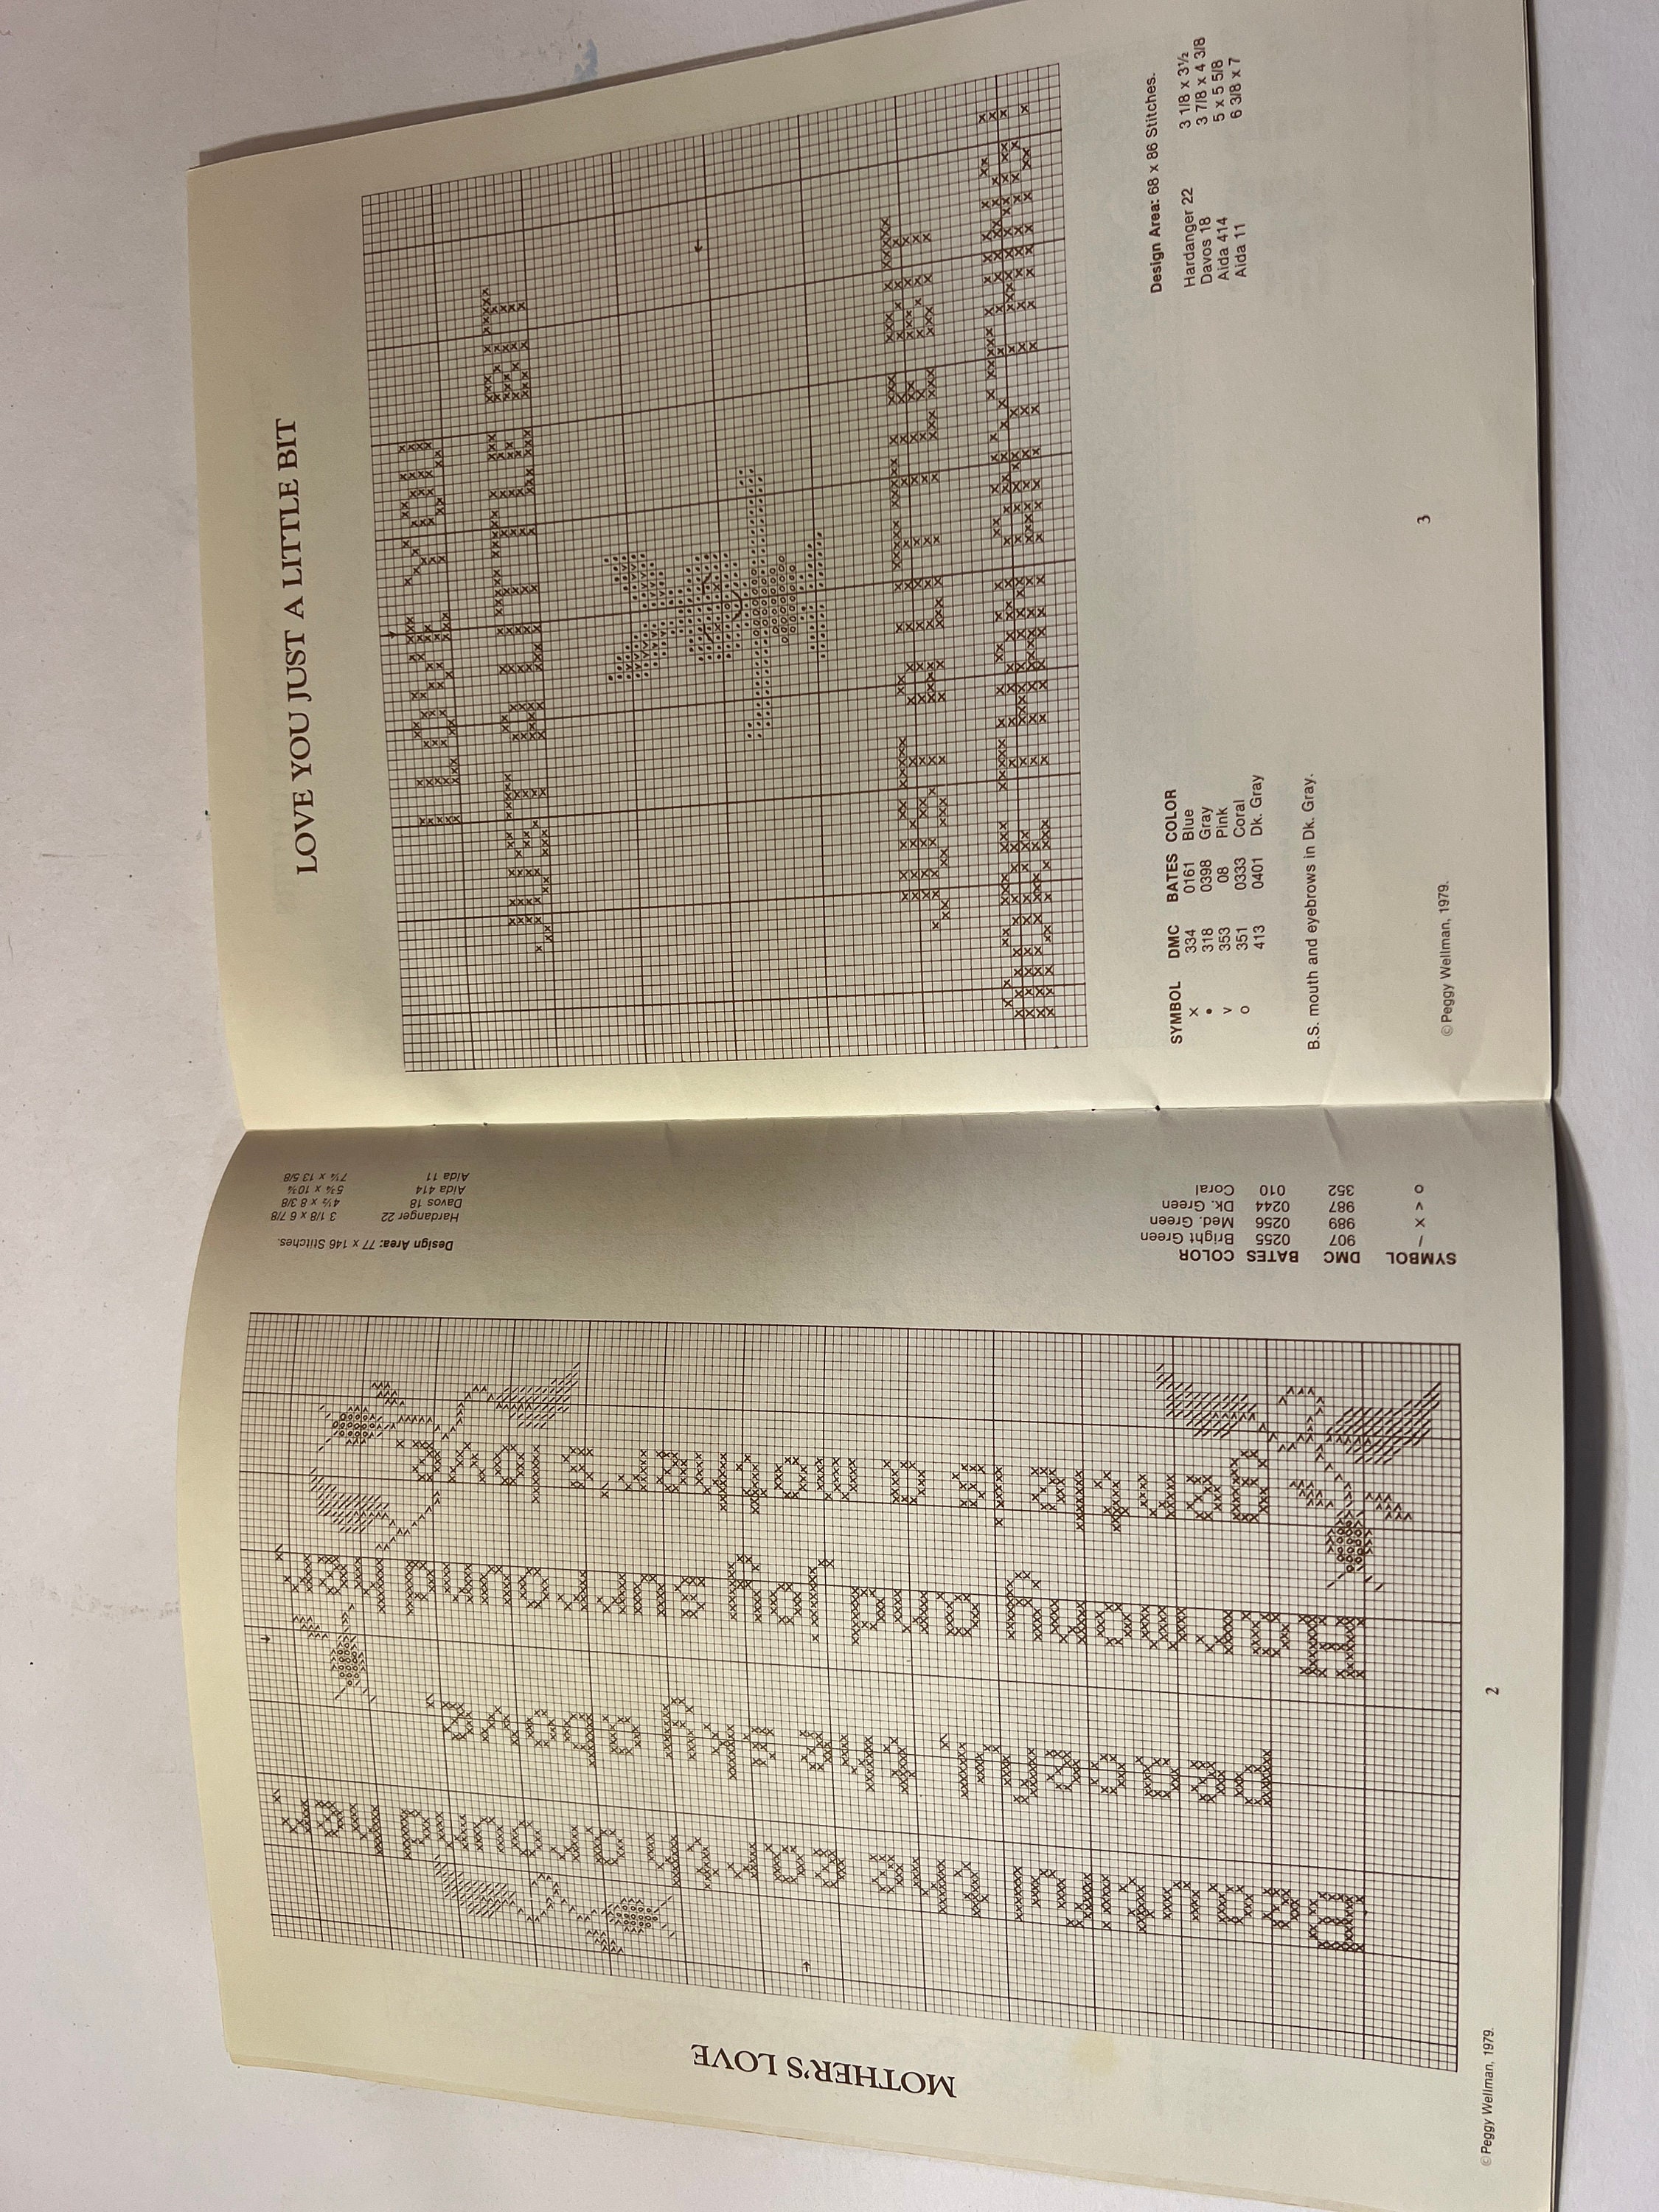 MOTHER'S LOVE
Beautiful the earth around her,
peaceful, the sky above,
Harmony and joy surround her,
gentle is a mother's love.
SYMBOL DMC BATES COLOR
/ 907 0255 Bright Green
x 989 0256 Med. Green
^ 987 0244 Dk. Green
o 352 010 Coral
Design Area: 77 x 146 Stitches.
Hardanger 22 3 1/8 x 6 7/8
Davos 18 4½ x 8 3/8
Aida 414 5¾ x 10¾
Aida 11 7¼ x 13 5/8
©Peggy Wellman, 1979.
2
LOVE YOU JUST A LITTLE BIT
I LOVE YOU
JUST a LITTLE BIT
JUST a LITTLE BIT
mORE THaN aNYTHING!
SYMBOL DMC BATES COLOR
x 334 0161 Blue
• 318 0398 Gray
v 353 08 Pink
o 351 0333 Coral
413 0401 Dk. Gray
B.S. mouth and eyebrows in Dk. Gray.
Design Area: 68 x 86 Stitches.
Hardanger 22 3 1/8 x 3½
Davos 18 3 7/8 x 4 3/8
Aida 414 5 x 5 5/8
Aida 11 6 3/8 x 7
©Peggy Wellman, 1979.
3